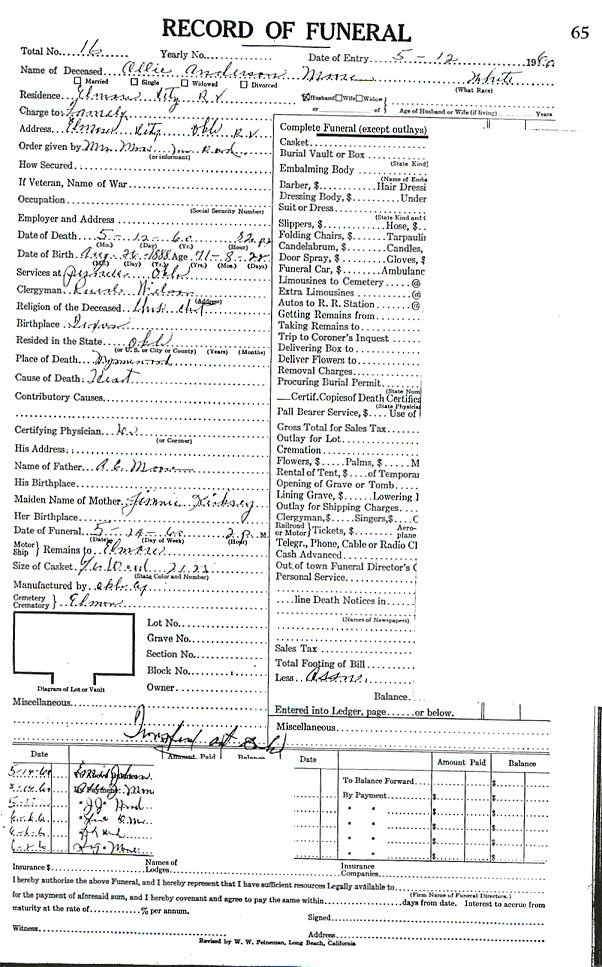 RECORD OF FUNERAL
65
Total No. 16 Yearly No. Date of Entry 5-12 1960
Name of Deceased Ollie Anderson Moore White
(What Race)
Married Single Widowed Divorced
Residence Elmore City Husband Wife Widow
or of Age of Husband or Wife (if living) Years
Charge to: Family
Address Elmore City Okla
Order given by Mrs. Moore
(or informant)
How Secured
If Veteran, Name of War
Occupation
(Social Security Number)
Employer and Address
Date of Death 5-12-60
(Mo.) (Day) (Yr.) (Hour)
Date of Birth Aug. 1888 Age 71-8-
(Mo.) (Day) (Yr.) (Yrs.) (Mos.) (Days)
Services at Okla
Clergyman
(Address)
Religion of the Deceased
Birthplace
Resided in the State Okla
(or U. S. or City or County) (Years) (Months)
Place of Death Wynnewood
Cause of Death: Heart
Contributory Causes
Certifying Physician
(or Coroner)
His Address
Name of Father Moore
His Birthplace
Maiden Name of Mother Jimmie Kirksey
Her Birthplace
Date of Funeral 5-14-60 2 P. M.
(Date) (Day of Week) (Hour)
Motor Ship } Remains to Elmore
Size of Casket
(State Color and Number)
Manufactured by Okla
Cemetery Crematory } Elmore
Lot No.
Grave No.
Section No.
Block No.
Owner
Diagram of Lot or Vault
Miscellaneous
Complete Funeral (except outlays)
Casket
Burial Vault or Box
(State Kind)
Embalming Body
(Name of Emba
Barber, $ Hair Dressi
Dressing Body, $ Under
Suit or Dress
(State Kind and C
Slippers, $ Hose, $
Folding Chairs, $ Tarpauli
Candelabrum, $ Candles,
Door Spray, $ Gloves, $
Funeral Car, $ Ambulanc
Limousines to Cemetery @
Extra Limousines @
Autos to R. R. Station @
Getting Remains from
Taking Remains to
Trip to Coroner's Inquest
Delivering Box to
Deliver Flowers to
Removal Charges
Procuring Burial Permit
(State Num
Certif. Copies of Death Certifica
(State Physicia
Pall Bearer Service, $ Use of
Gross Total for Sales Tax
Outlay for Lot
Cremation
Flowers, $ Palms, $ M
Rental of Tent, $ of Temporar
Opening of Grave or Tomb
Lining Grave, $ Lowering I
Outlay for Shipping Charges
Clergyman, $ Singers, $ C
Railroad or Motor } Tickets, $ Aero-plane
Telegr., Phone, Cable or Radio Cl
Cash Advanced
Out of town Funeral Director's C
Personal Service
line Death Notices in
(Names of Newspapers)
Sales Tax
Total Footing of Bill
Less Assn.
Balance
Entered into Ledger, page or below.
Miscellaneous
Date Amount Paid Balance
5-14-60
Date Amount Paid Balance
To Balance Forward $
By Payment $ $
" " $ $
" " $ $
" " $ $
" " $ $
Insurance $ Names of Lodges Insurance Companies
I hereby authorize the above Funeral, and I hereby represent that I have sufficient resources Legally available to
(Firm Name of Funeral Directors.)
for the payment of aforesaid sum, and I hereby covenant and agree to pay the same within days from date. Interest to accrue from
maturity at the rate of % per annum.
Signed
Witness Address
Revised by W. W. Feineman, Long Beach, California